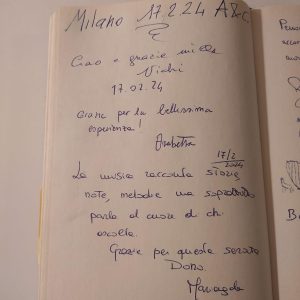 Milano 17.2.24
Ciao e grazie mille
17.02.24
Grazie per la bellissima
esperienza!
17/2
2024
La musica racconta storie
note, melodie ma soprattutto
parla al cuore di chi
ascolta.
Grazie per questa serata